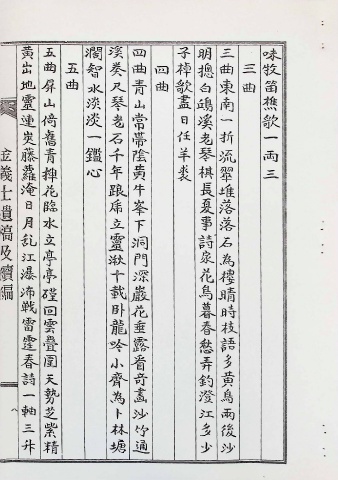 味牧笛樵歌一兩三
三曲
三曲東南一折流翠堆落落石為樓晴時枝語多黃鳥雨後沙
明摠白鴎溪老琴棋長夏事詩泉花鳥暮春愁弄釣澄江多少
子棹歌盡日任羊裘
四曲
四曲青山常帶陰黃牛峯下洞門深巖花垂露看奇畵沙竹通
溪奏尺琴老石千年踉虎立靈湫千載卧龍吟小齊為卜林塘
濶智水淡淡一鑑心
五曲
五曲屛山倚舊靑揷花臨水立亭亭磴回雲疊圍天勢芝紫精
黃出地靈連炭藤蘿淹日月乱江瀑沛戰雷霆春詩一軸三升
義士遺稿及續編
八